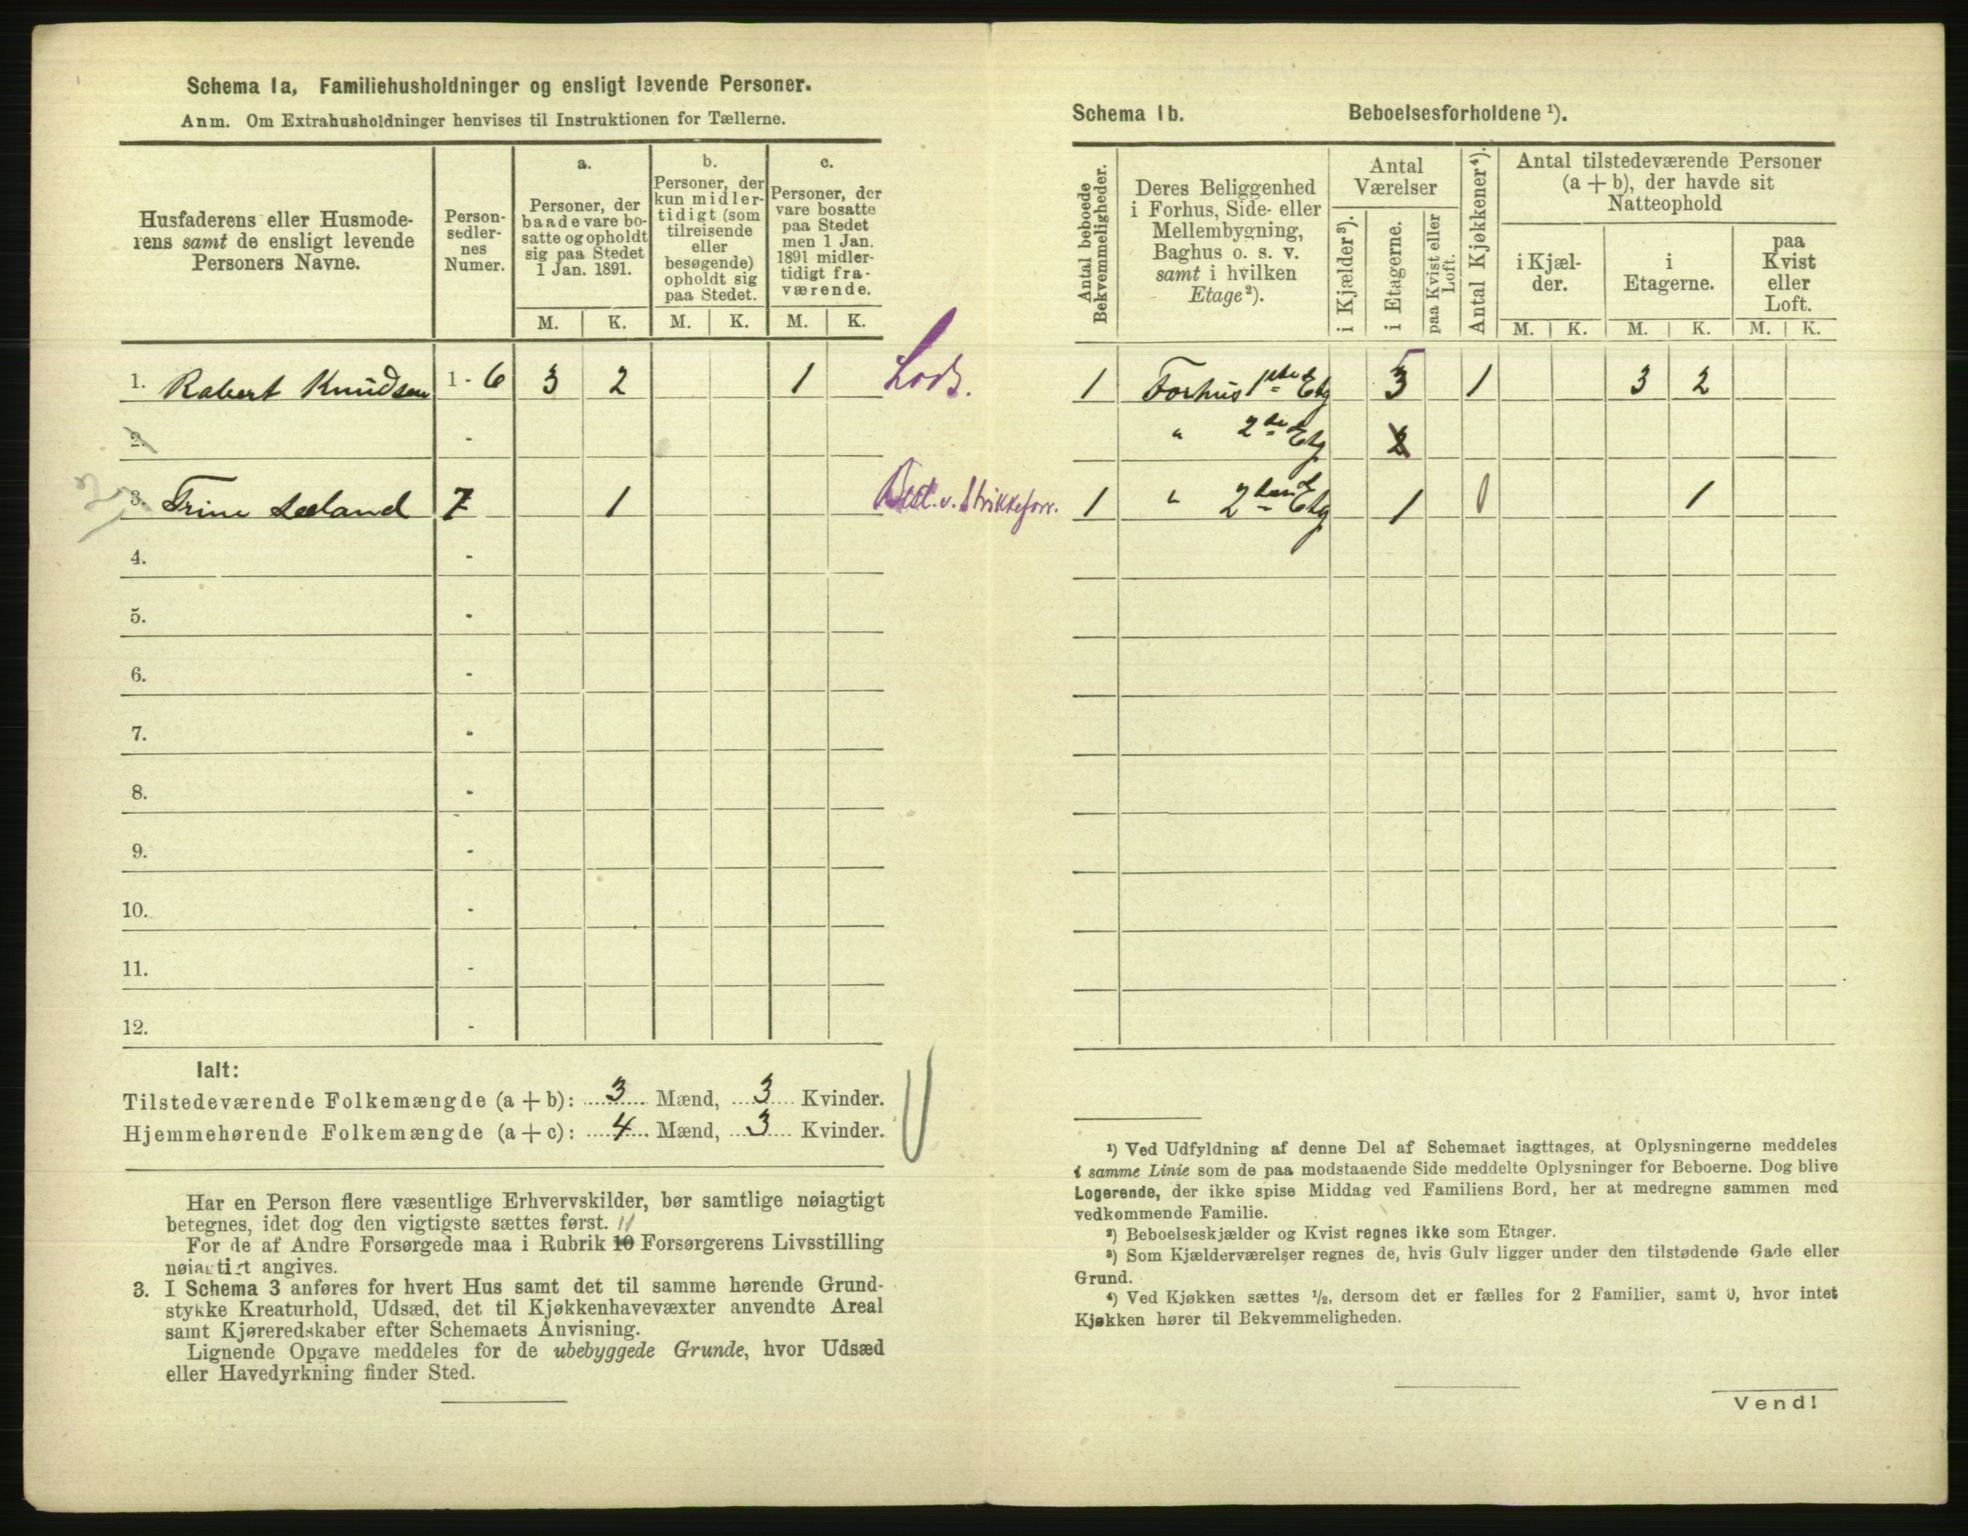 Schema 1a, Familiehusholdninger og ensligt levende Personer.
Anm. Om Extrahusholdninger henvises til Instruktionen for Tællerne.
Husfaderens eller Husmode-
rens samt de ensligt levende
Personers Navne.
Person-
sedler-
nes
Numer.
a.
Personer, der
baade vare bo-
satte og opholdt
sig paa Stedet
1 Jan. 1891.
b.
Personer, der
kun midler-
tidigt (som
tilreisende
eller
besøgende)
opholdt sig
paa Stedet.
c.
Personer, der
vare bosatte
paa Stedet
men 1 Jan.
1891 midler-
tidigt fra-
værende.
M. K. M. K. M. K.
1. Robert Knudsen 1 - 6 3 2 1 Lods.
2. -
3. Trine Leland 7 1 Best. v. Strikkeforr.
4. -
5. -
6. -
7. -
8. -
9. -
10. -
11. -
12. -
Ialt:
Tilstedeværende Folkemængde (a + b): 3 Mænd, 3 Kvinder.
Hjemmehørende Folkemængde (a + c): 4 Mænd, 3 Kvinder.
Har en Person flere væsentlige Erhvervskilder, bør samtlige nøiagtigt
betegnes, idet dog den vigtigste sættes først. 11
For de af Andre Forsørgede maa i Rubrik 10 Forsørgerens Livsstilling
nøiagtigt angives.
3. I Schema 3 anføres for hvert Hus samt det til samme hørende Grund-
stykke Kreaturhold, Udsæd, det til Kjøkkenhavevæxter anvendte Areal
samt Kjøreredskaber efter Schemaets Anvisning.
Lignende Opgave meddeles for de ubebyggede Grunde, hvor Udsæd
eller Havedyrkning finder Sted.
Schema 1b. Beboelsesforholdene ¹).
Antal beboede
Bekvemmeligheder.
Deres Beliggenhed
i Forhus, Side- eller
Mellembygning,
Baghus o. s. v.
samt i hvilken
Etage²).
Antal
Værelser
i Kjælder³).
i Etagerne.
paa Kvist eller
Loft.
Antal Kjøkkener⁴).
Antal tilstedeværende Personer
(a + b), der havde sit
Natteophold
i Kjæl-
der.
i
Etagerne.
paa
Kvist
eller
Loft.
M. K. M. K. M. K.
1 Forhus 1ste Etg 5 3 1 3 2
" 2de Etg 2
1 " 2den Etg 1 0 1
¹) Ved Udfyldning af denne Del af Schemaet iagttages, at Oplysningerne meddeles
i samme Linie som de paa modstaaende Side meddelte Oplysninger for Beboerne. Dog blive
Logerende, der ikke spise Middag ved Familiens Bord, her at medregne sammen med
vedkommende Familie.
²) Beboelseskjælder og Kvist regnes ikke som Etager.
³) Som Kjælderværelser regnes de, hvis Gulv ligger under den tilstødende Gade eller
Grund.
⁴) Ved Kjøkken sættes ½, dersom det er fælles for 2 Familier, samt 0, hvor intet
Kjøkken hører til Bekvemmeligheden.
Vend!